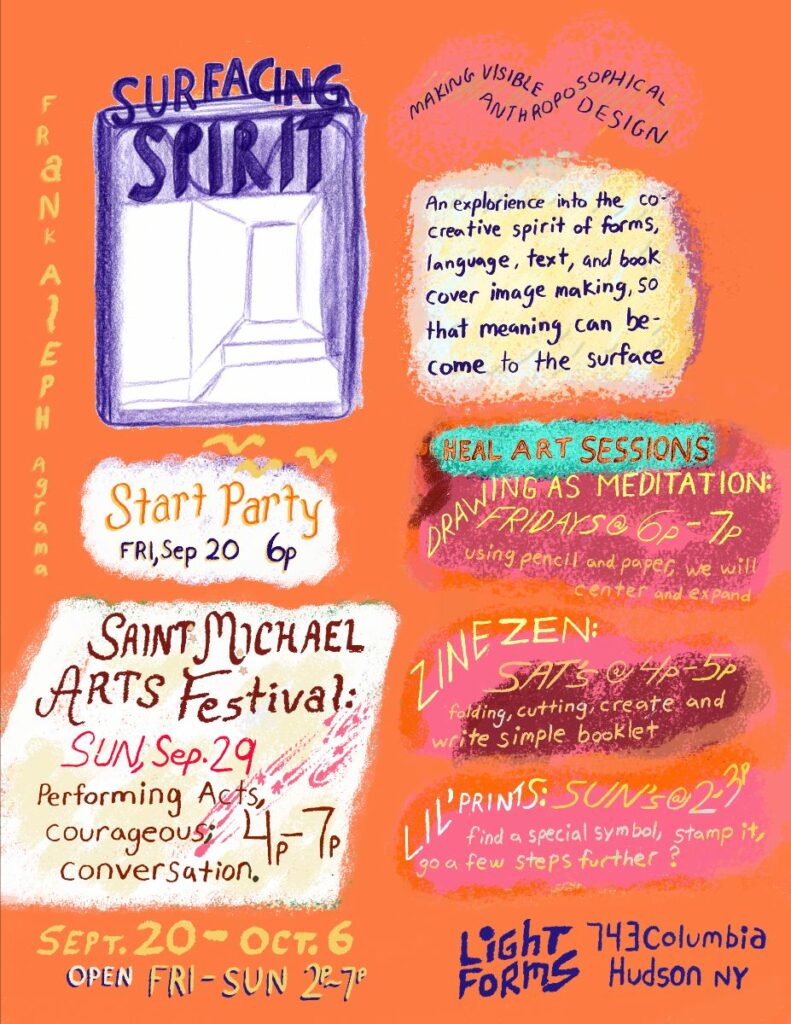 SURFACING
SPIRIT
FRANK ALEPH Agrama
MAKING VISIBLE
ANTHROPOSOPHICAL
DESIGN
An explorience into the co-
creative spirit of forms,
language, text, and book
cover image making, so
that meaning can be-
come to the surface
Start Party
FRI, Sep 20 6p
HEAL ART SESSIONS
DRAWING AS MEDITATION:
FRIDAYS @ 6p-7p
using pencil and paper, we will
center and expand
SAINT MICHAEL
ARTS Festival:
SUN, Sep. 29
Performing Acts,
courageous;
conversation.
4p-7p
ZINE ZEN:
SAT's @ 4p-5p
folding, cutting, create and
write simple booklet
LIL' PRINTS: SUN's @ 2-3p
find a special symbol, stamp it,
go a few steps further?
SEPT. 20 - OCT. 6
OPEN FRI-SUN 2p-7p
LIGHT
FORMS
743 Columbia
Hudson NY